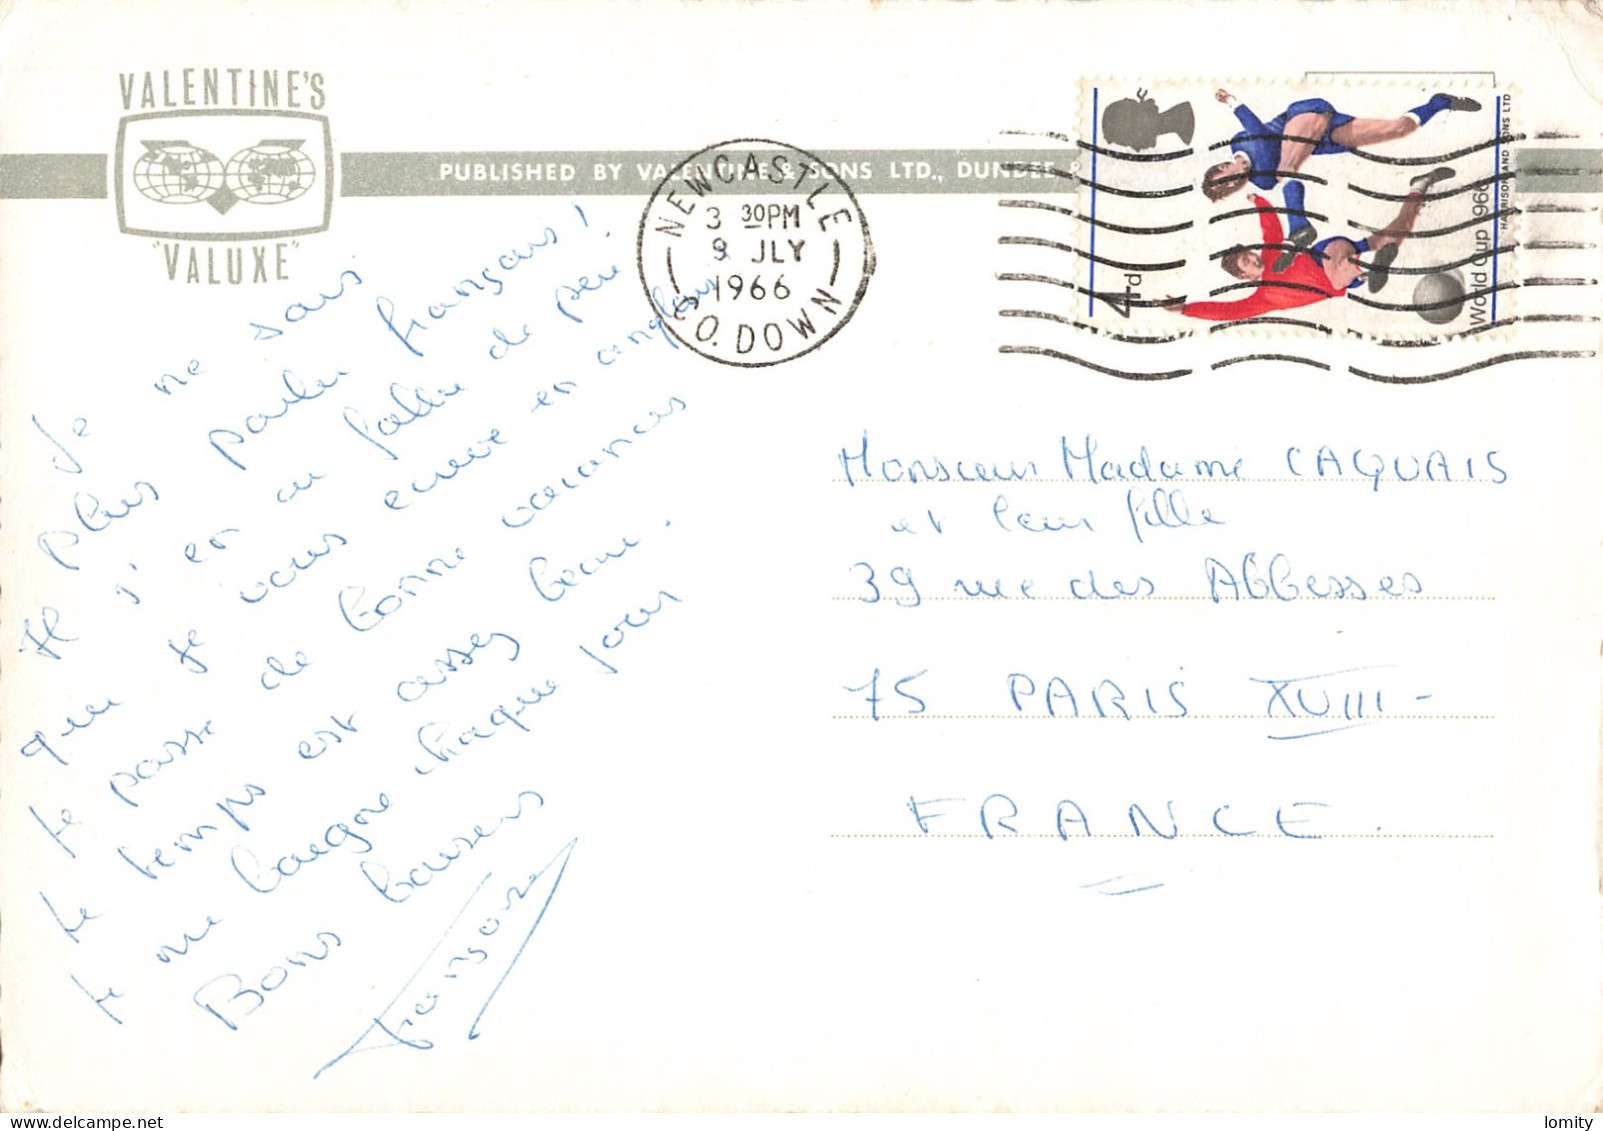 VALENTINE'S
"VALUXE"
PUBLISHED BY VALENTINE & SONS LTD., DUNDEE &
NEWCASTLE
3 30PM
9 JLY
1966
CO. DOWN
4d
World Cup 1966
HARRISON AND SONS LTD
Je ne sais
plus parler français !
Il s'en au fallu de peu
que je vous ecrive en anglais
Je passe de bonne vacances
Le temps est assez beau.
Je me baigne chaque jour
Bons baisers
Françoise
Monsieur Madame CAQUAIS
et leur fille
39 rue des Abbesses
75 PARIS XVIII -
FRANCE.
lomity